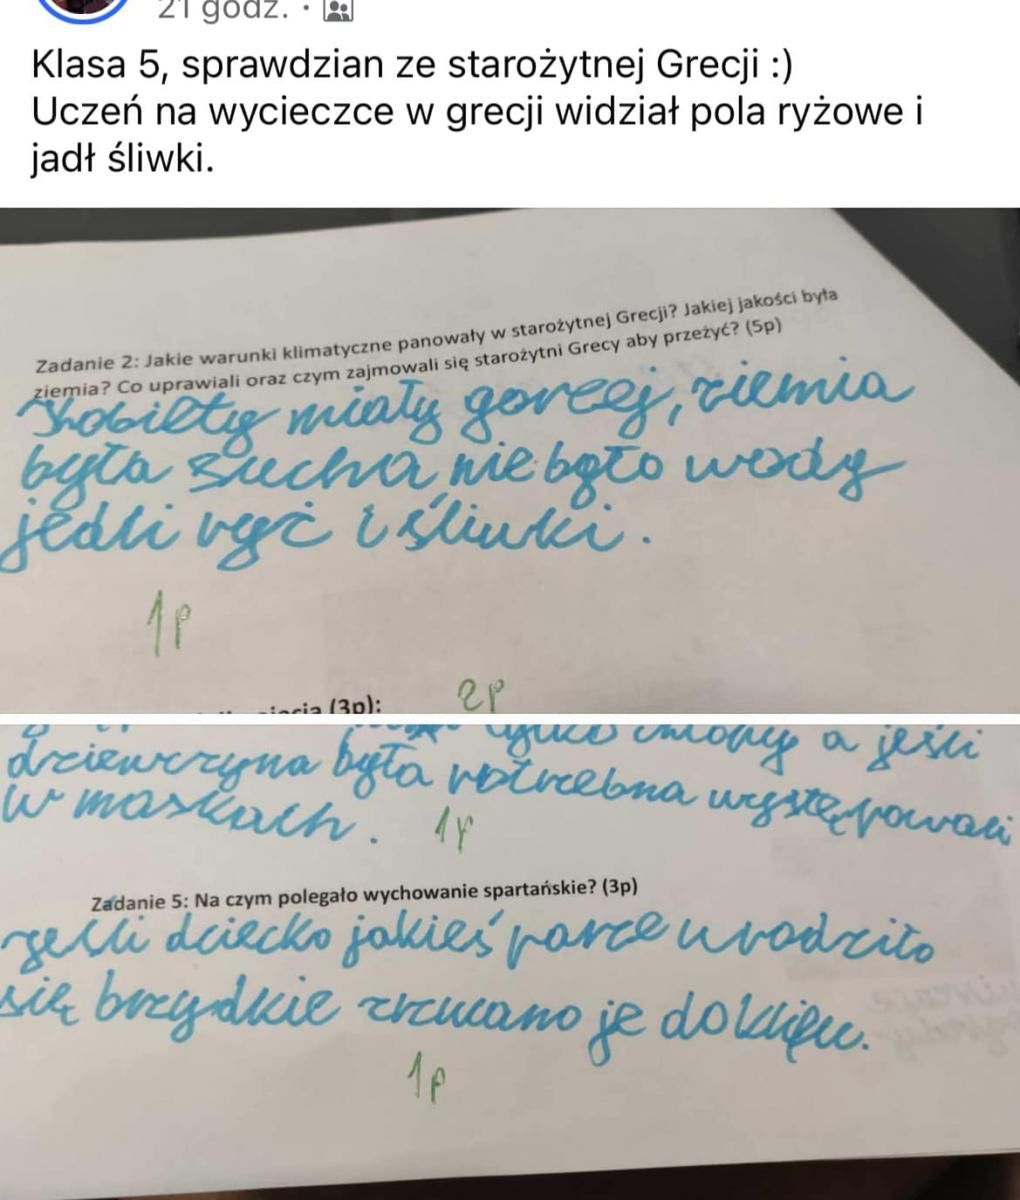 21 godz.
Klasa 5, sprawdzian ze starożytnej Grecji :)
Uczeń na wycieczce w grecji widział pola ryżowe i
jadł śliwki.
Zadanie 2: Jakie warunki klimatyczne panowały w starożytnej Grecji? Jakiej jakości była
ziemia? Co uprawiali oraz czym zajmowali się starożytni Grecy aby przeżyć? (5p)
Kobiety miały gorzej, ziemia
była sucha nie było wody
jedli ryż i śliwki.
1p
(3p):
2p
tylko a jeśli
dziewczyna była potrzebna występowali
w maskach. 1p
Zadanie 5: Na czym polegało wychowanie spartańskie? (3p)
jeśli dziecko jakieś parze urodziło
się brzydkie zrzucano je do klifu.
1p